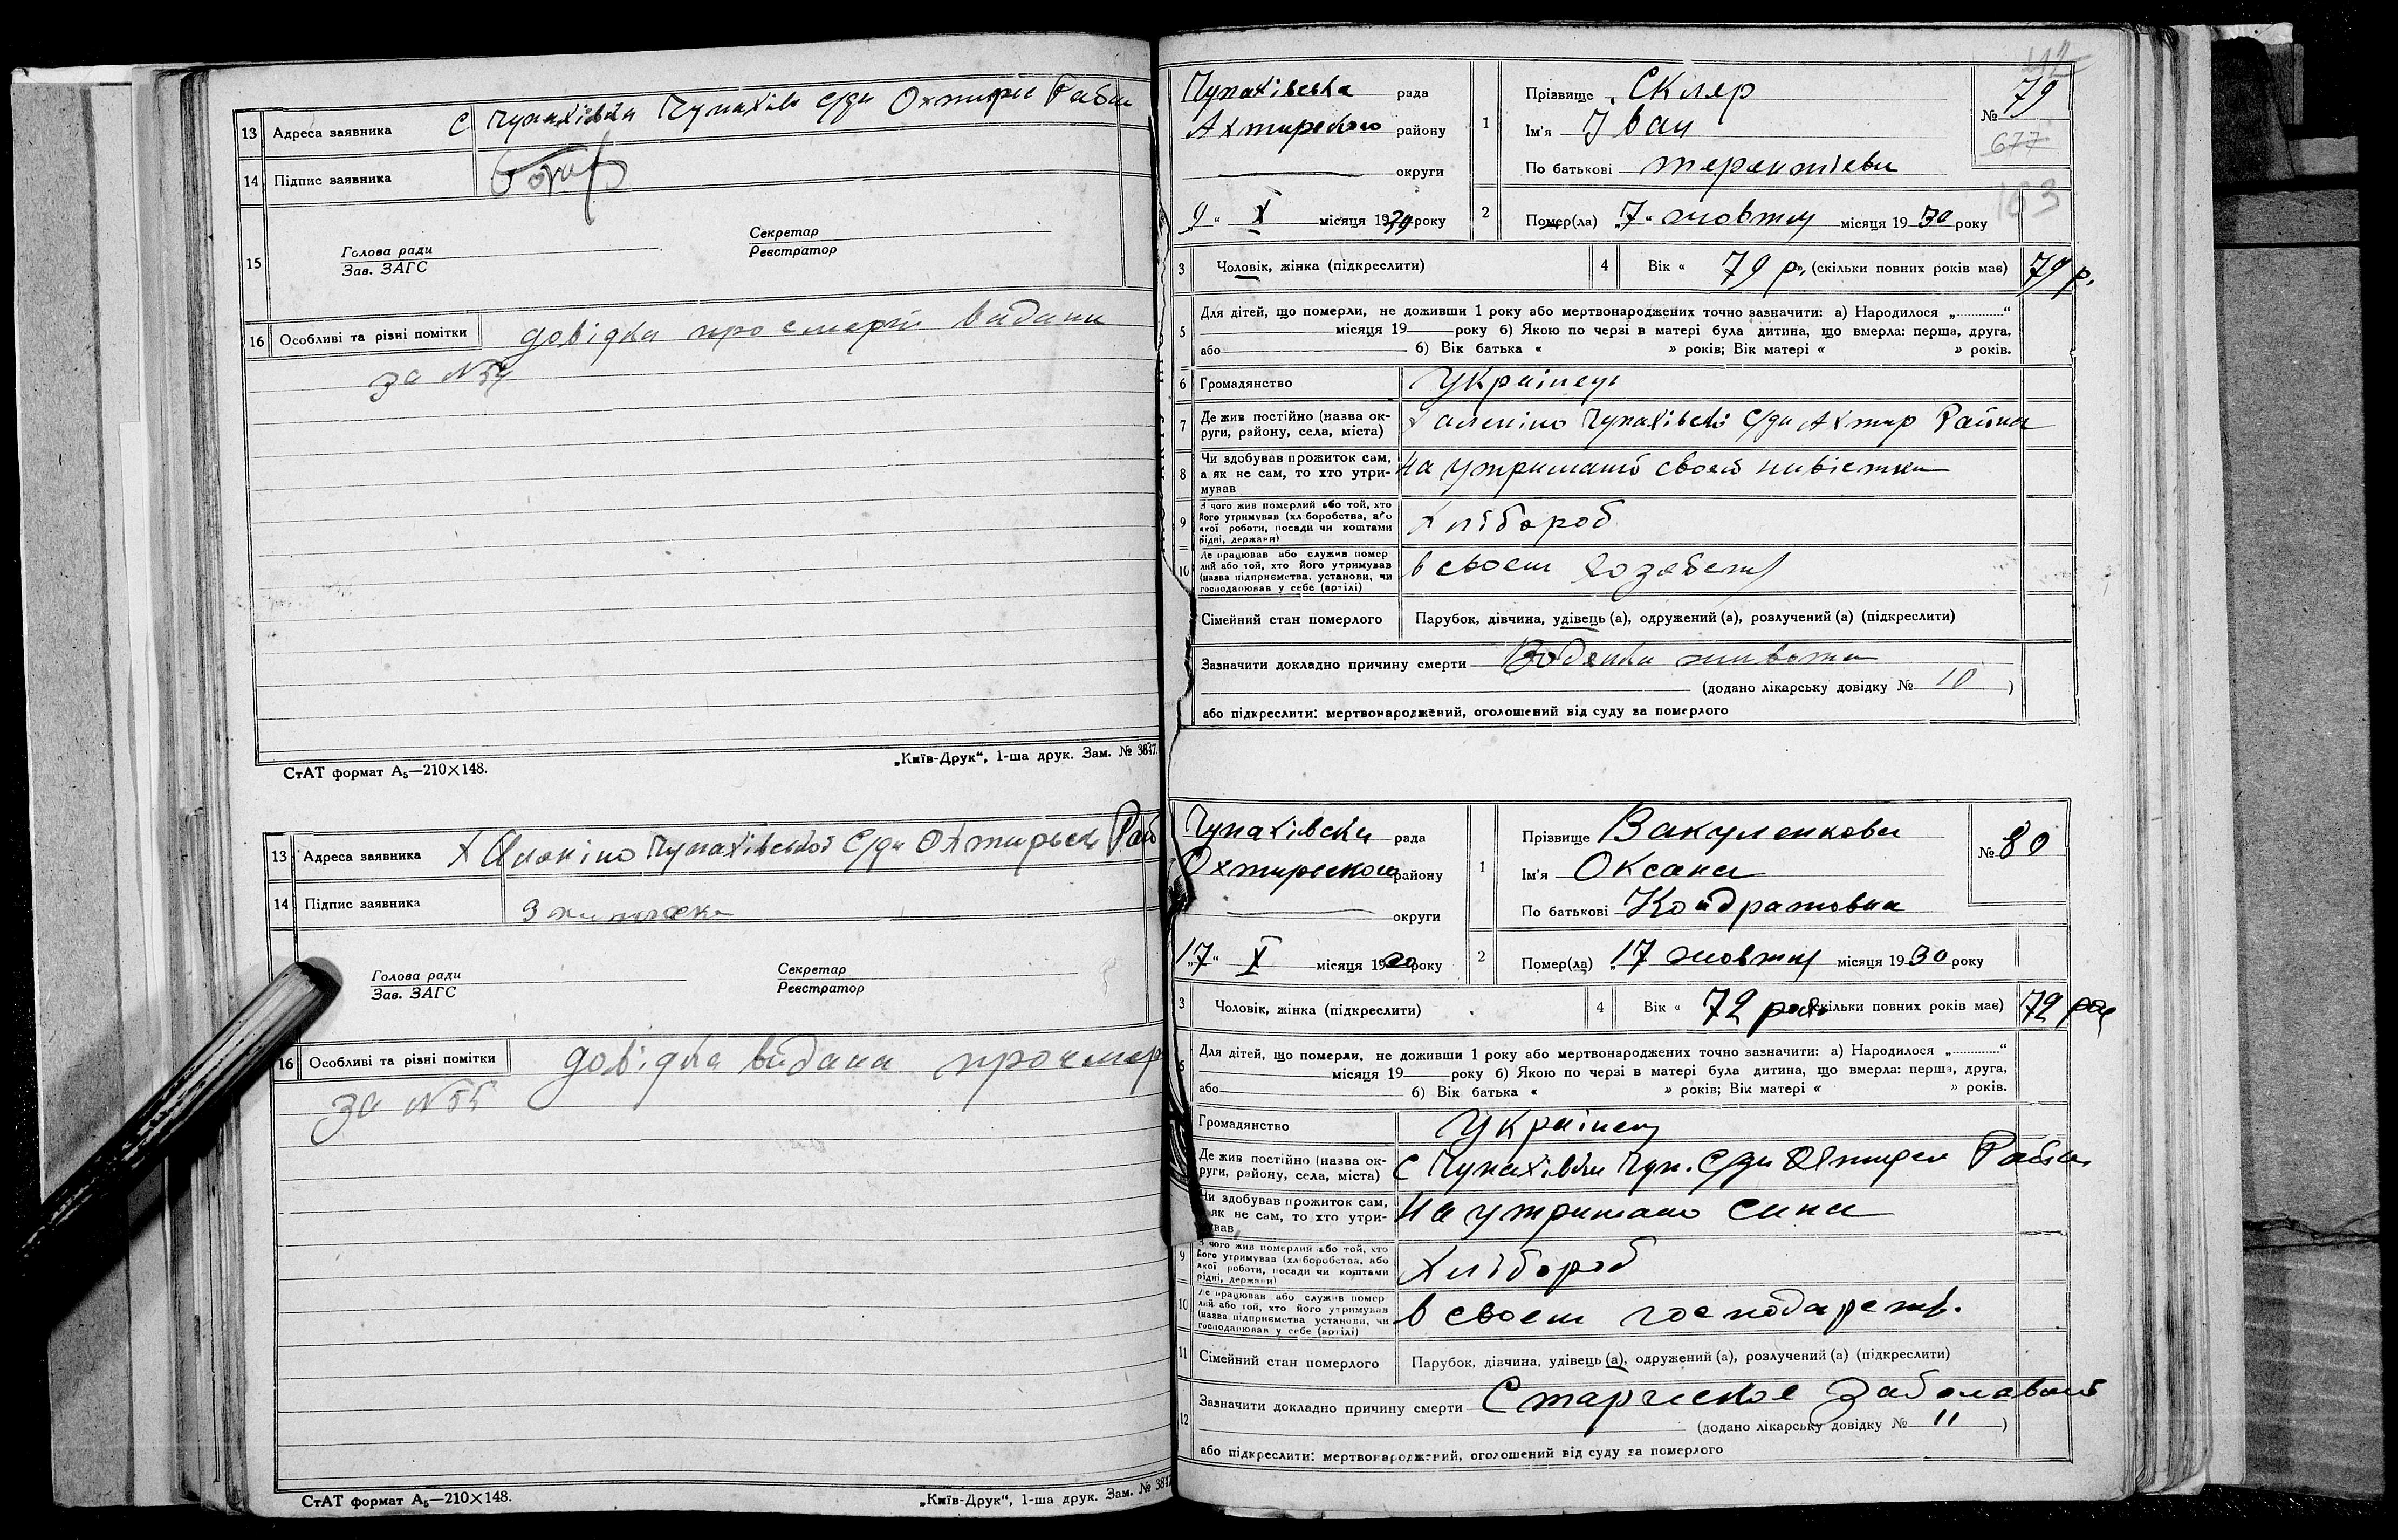 13 Адреса заявника С Чупахівка Чупахів С/ди Охтирс Район
14 Підпис заявника
15 Голова ради
Зав. ЗАГС
Секретар
Реєстратор
16 Особливі та різні помітки довідка про смерть видана
за №54
СтАТ формат А5—210×148.
„Київ-Друк“, 1-ша друк. Зам. № 3847.
13 Адреса заявника Чупахівської С/ди Охтирськ Рай
14 Підпис заявника
Голова ради
Зав. ЗАГС
Секретар
Реєстратор
16 Особливі та різні помітки довідка видана про смер
за №55
СтАТ формат А5—210×148.
„Київ-Друк“, 1-ша друк. Зам. № 3847
Чупахівська рада
Ахтирського району
округи
„9“ X місяця 1930 року
1 Прізвище Скляр
Ім'я Іван
По батькові терентієви
№ 79
677
163
2 Помер(ла) „7“ жовтня місяця 1930 року
3 Чоловік, жінка (підкреслити)
4 Вік « 79 р. (скільки повних років має) 79 р.
5 Для дітей, що померли, не доживши 1 року або мертвонароджених точно зазначити: а) Народилося „............“
місяця 19 року б) Якою по черзі в матері була дитина, що вмерла: перша, друга,
або б) Вік батька « » років; Вік матері « » років.
6 Громадянство Українець
7 Де жив постійно (назва округи, району, села, міста) Чупахівської С/ди Ахтир Района
8 Чи здобував прожиток сам, а як не сам, то хто утримував на утриманні своей невістки
9 З чого жив померлий або той, хто його утримував (хліборобства, або якої роботи, посади чи коштами рідні, держави) Хлібороб
10 Де працював або служив померлий або той, хто його утримував (назва підприємства, установи, чи господарював у себе (артілі) в своем хозяйстві
Сімейний стан померлого Парубок, дівчина, удівець (а), одружений (а), розлучений (а) (підкреслити)
Зазначити докладно причину смерти Водянка живота
(додано лікарську довідку № 10 )
або підкреслити: мертвонароджений, оголошений від суду за померлого
Чупахівська рада
Охтирського району
округи
„17“ X місяця 1930 року
1 Прізвище Вакуленкова
Ім'я Оксана
По батькові Кондратовна
№ 80
2 Помер(ла) „17 жовтня місяця 1930 року
3 Чоловік, жінка (підкреслити)
4 Вік « 72 рок (скільки повних років має) 72 рок
5 Для дітей, що померли, не доживши 1 року або мертвонароджених точно зазначити: а) Народилося „............“
місяця 19 року б) Якою по черзі в матері була дитина, що вмерла: перша, друга,
або б) Вік батька « » років; Вік матері « » років.
Громадянство Українец
Де жив постійно (назва округи, району, села, міста) С Чупахівки Чуп. С/ди Охтирск Район
Чи здобував прожиток сам, а як не сам, то хто утримував На утриманю сина
9 З чого жив померлий або той, хто його утримував (хліборобства, або якої роботи, посади чи коштами рідні, держави) Хлібороб
10 Де працював або служив померлий або той, хто його утримував (назва підприємства установи, чи господарював у себе (артілі) в своем господарств.
11 Сімейний стан померлого Парубок, дівчина, удівець (а), одружений (а), розлучений (а) (підкреслити)
12 Зазначити докладно причину смерти Старческое заболеваніе
(додано лікарську довідку № 11 )
або підкреслити: мертвонароджений, оголошений від суду за померлого